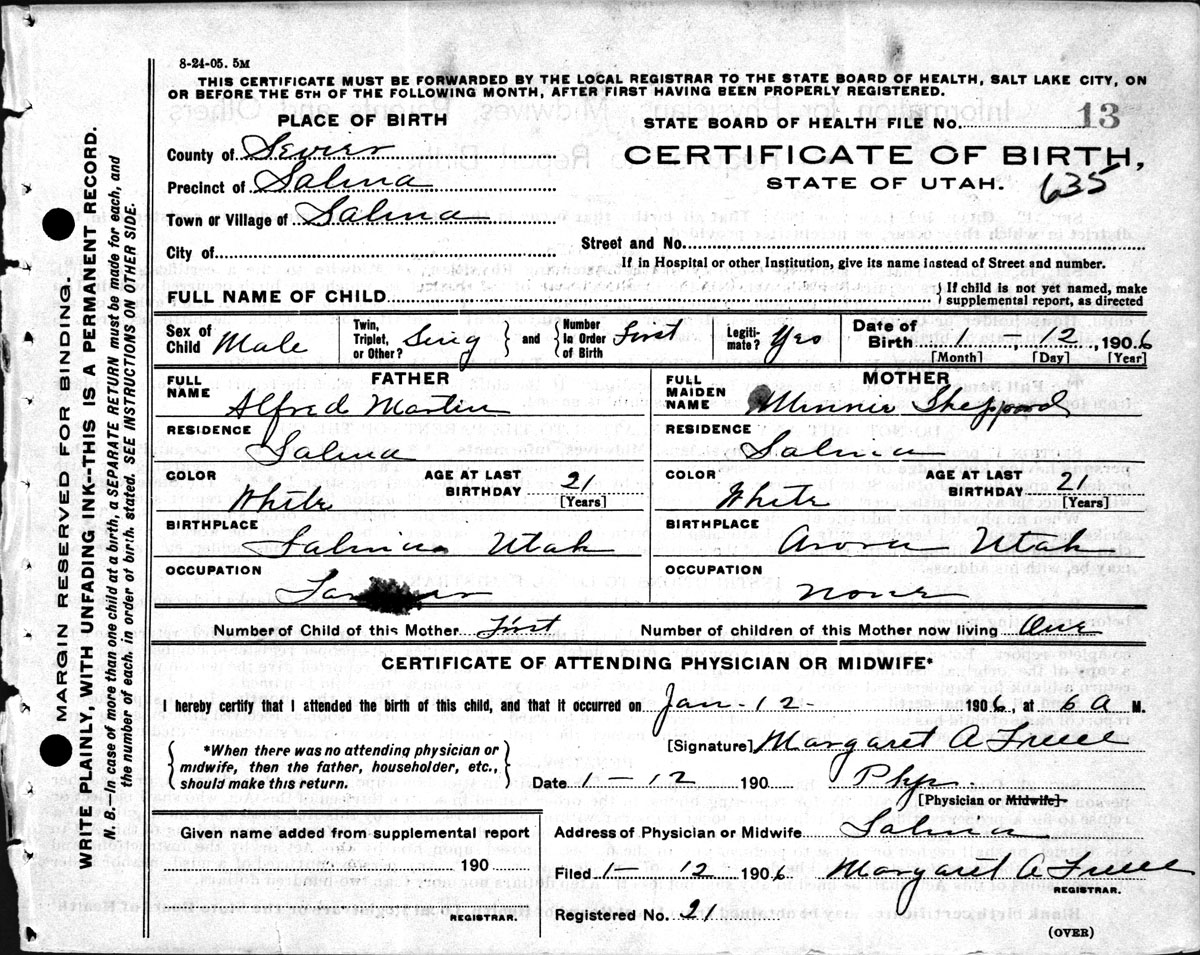 8-24-05. 5M
THIS CERTIFICATE MUST BE FORWARDED BY THE LOCAL REGISTRAR TO THE STATE BOARD OF HEALTH, SALT LAKE CITY, ON
OR BEFORE THE 5TH OF THE FOLLOWING MONTH, AFTER FIRST HAVING BEEN PROPERLY REGISTERED.
PLACE OF BIRTH
STATE BOARD OF HEALTH FILE NO. 13
County of Sevier
CERTIFICATE OF BIRTH,
Precinct of Salina
STATE OF UTAH. 635
Town or Village of Salina
City of
Street and No.
If in Hospital or other Institution, give its name instead of Street and number.
FULL NAME OF CHILD
{ If child is not yet named, make
supplemental report, as directed
Sex of Child Male
Twin, Triplet, or Other? Sing } and { Number In Order of Birth First
Legiti-mate? Yes
Date of Birth 1 - 12, 1906
[Month] [Day] [Year]
FATHER
MOTHER
FULL NAME Alfred Martin
FULL MAIDEN NAME Minnie Sheppard
RESIDENCE Salina
RESIDENCE Salina
COLOR White
AGE AT LAST BIRTHDAY 21 [Years]
COLOR White
AGE AT LAST BIRTHDAY 21 [Years]
BIRTHPLACE Salina Utah
BIRTHPLACE Utah
OCCUPATION
OCCUPATION None
Number of Child of this Mother First
Number of children of this Mother now living One
CERTIFICATE OF ATTENDING PHYSICIAN OR MIDWIFE*
I hereby certify that I attended the birth of this child, and that it occurred on Jan - 12 - 1906, at 6 A M.
{ *When there was no attending physician or
midwife, then the father, householder, etc.,
should make this return. }
[Signature] Margaret A
Date 1 - 12 190 Phy.
[Physician or Midwife]
Given name added from supplemental report
190
REGISTRAR.
Address of Physician or Midwife Salina
Filed 1 - 12 1906 Margaret A
REGISTRAR.
Registered No. 21
(OVER)
MARGIN RESERVED FOR BINDING.
WRITE PLAINLY, WITH UNFADING INK--THIS IS A PERMANENT RECORD.
N. B.—In case of more than one child at a birth, a SEPARATE RETURN must be made for each, and
the number of each, in order of birth, stated. SEE INSTRUCTIONS ON OTHER SIDE.